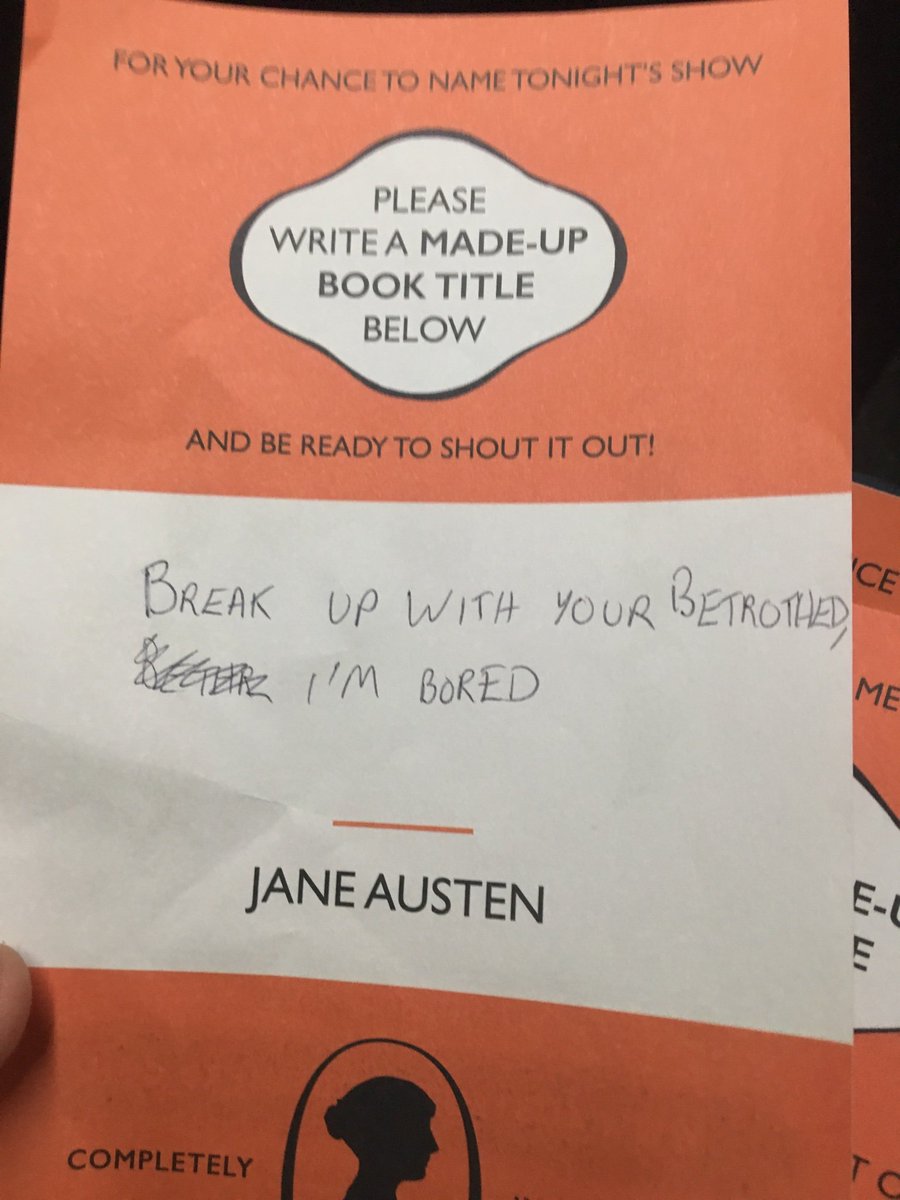 FOR YOUR CHANCE TO NAME TONIGHT'S SHOW
PLEASE
WRITE A MADE-UP
BOOK TITLE
BELOW
AND BE READY TO SHOUT IT OUT!
BREAK UP WITH YOUR BETROTHED,
I'M BORED
JANE AUSTEN
COMPLETELY
ICE
ME
E-U
E
T C